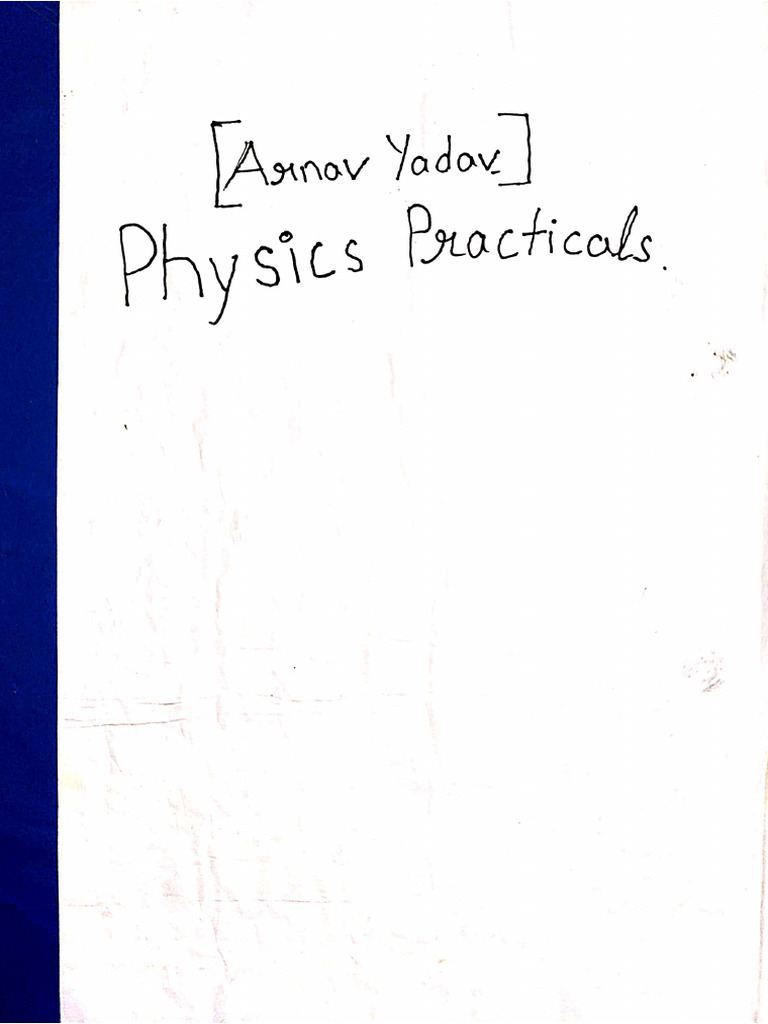 [Arnav Yadav.]
Physics Practicals.